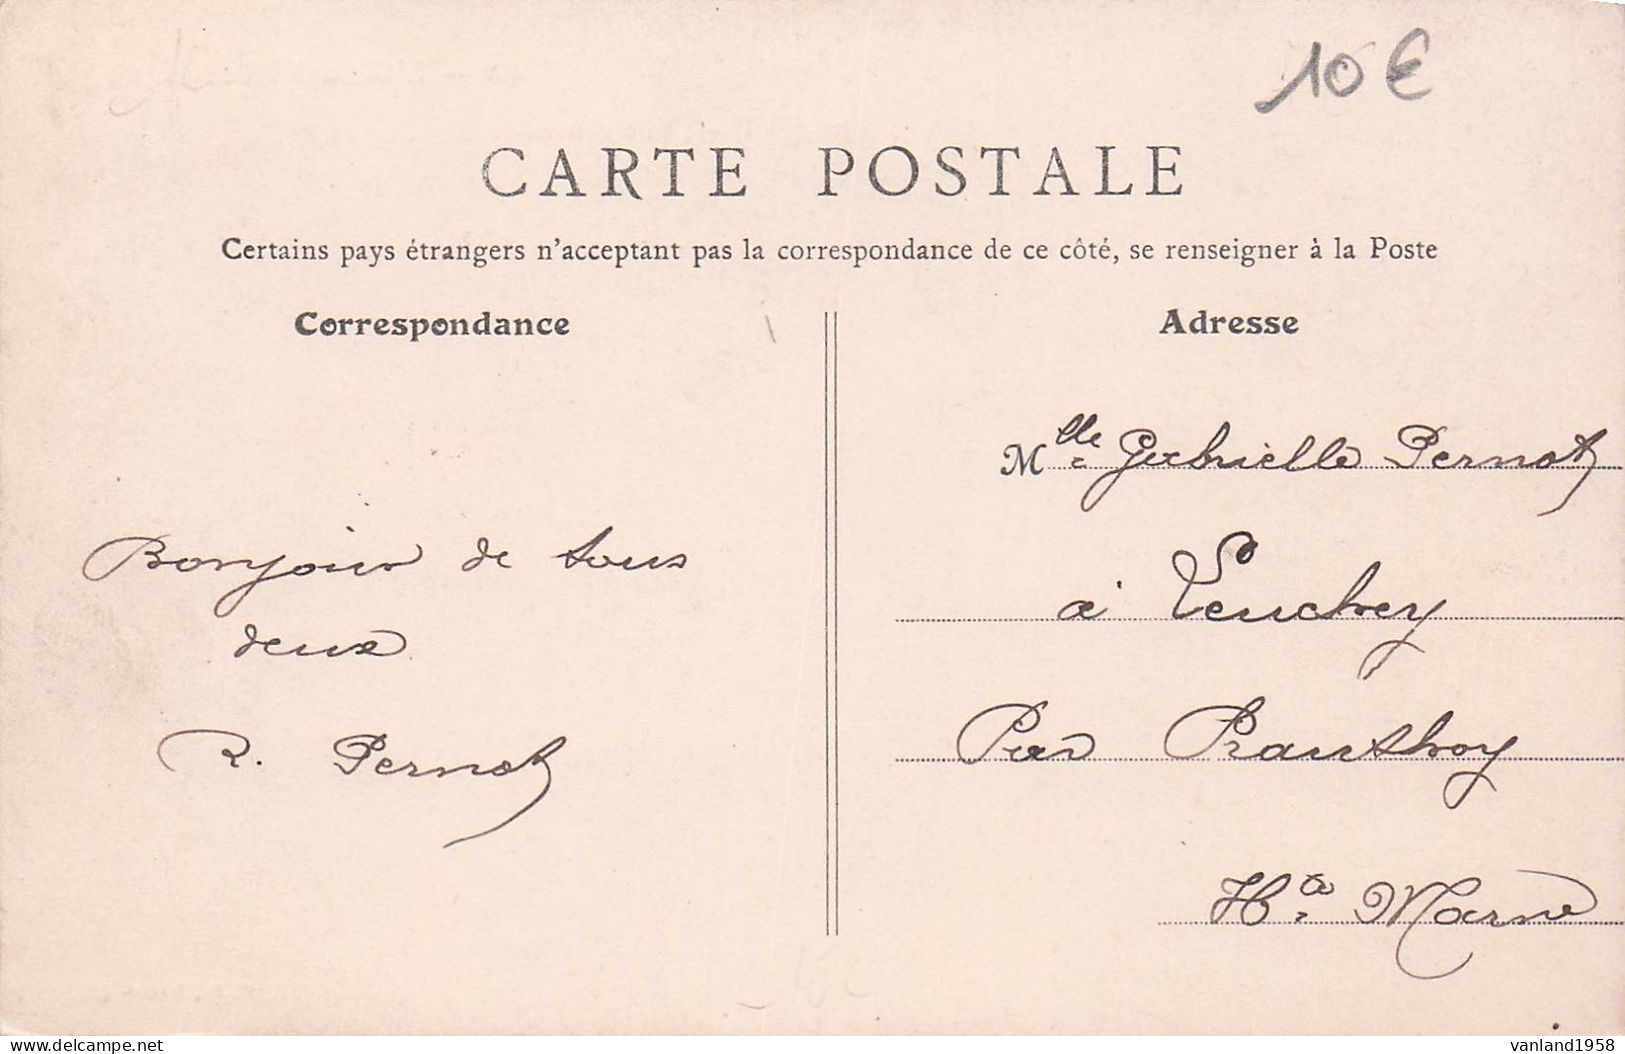 10 €
CARTE POSTALE
Certains pays étrangers n'acceptant pas la correspondance de ce côté, se renseigner à la Poste
Correspondance
Bonjour de tous
deux
R. Pernot
Adresse
Mlle Gabrielle Pernot
à Leuchey
Par Prauthoy
Hte Marne
www.delcampe.net
vanland1958